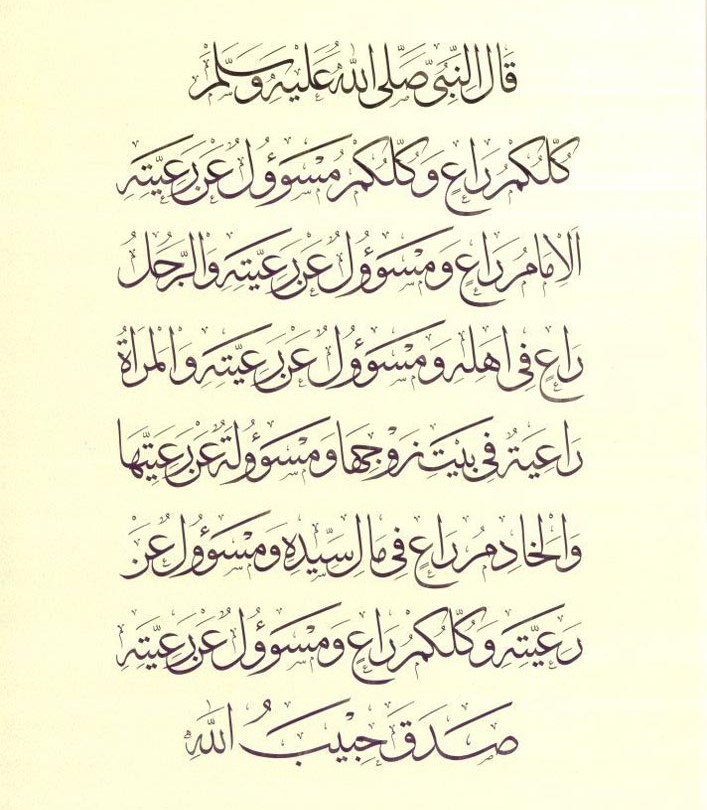 قَالَ النَّبِيُّ صَلَّى اللهُ عَلَيْهِ وَسَلَّمَ
كُلُّكُمْ رَاعٍ وَكُلُّكُمْ مَسْؤُولٌ عَنْ رَعِيَّتِهِ
اَلْاِمَامُ رَاعٍ وَمَسْؤُولٌ عَنْ رَعِيَّتِهِ وَالرَّجُلُ
رَاعٍ فِى اَهْلِهِ وَمَسْؤُولٌ عَنْ رَعِيَّتِهِ وَالْمَرْاَةُ
رَاعِيَةٌ فِى بَيْتِ زَوْجِهَا وَمَسْؤُولَةٌ عَنْ رَعِيَّتِهَا
وَالْخَادِمُ رَاعٍ فِى مَالِ سَيِّدِهِ وَمَسْؤُولٌ عَنْ
رَعِيَّتِهِ وَكُلُّكُمْ رَاعٍ وَمَسْؤُولٌ عَنْ رَعِيَّتِهِ
صَدَقَ حَبِيْبُ اللهِ